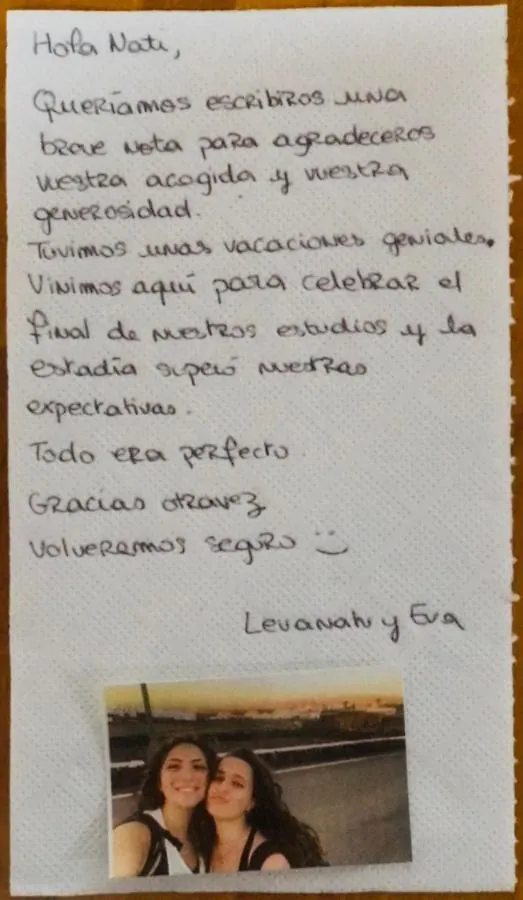 Hola Nati,
Queríamos escribiros una
breve nota para agradeceros
vuestra acogida y vuestra
generosidad.
Tuvimos unas vacaciones geniales.
Vinimos aquí para celebrar el
final de nuestros estudios y la
estadía superó nuestras
expectativas.
Todo era perfecto.
Gracias otravez
Volveremos seguro :)
y Eva